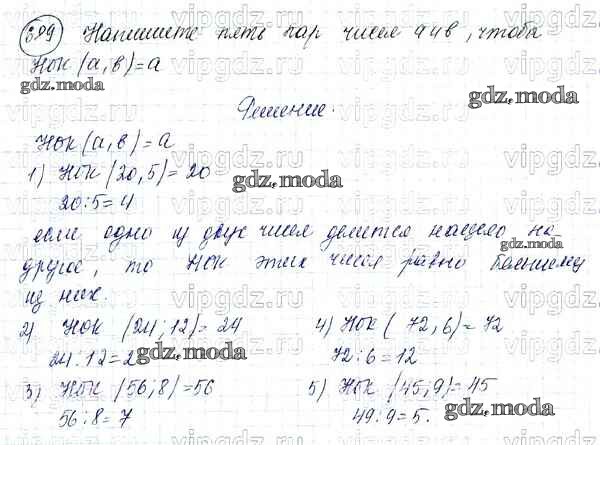 309 Напишите пять пар чисел а и в, чтобы
НОК (а, в) = а
Решение.
НОК (а, в) = а
1) НОК (20, 5) = 20
20:5 = 4
если одно из двух чисел делится нацело на
другое, то НОК этих чисел равно большему
из них.
2) НОК (24; 12) = 24
24:12 = 2
3) НОК (56; 8) = 56
56:8 = 7
4) НОК (72, 6) = 72
72:6 = 12
5) НОК (45; 9) = 45
49:9 = 5.
gdz.moda
vipgdz.ru